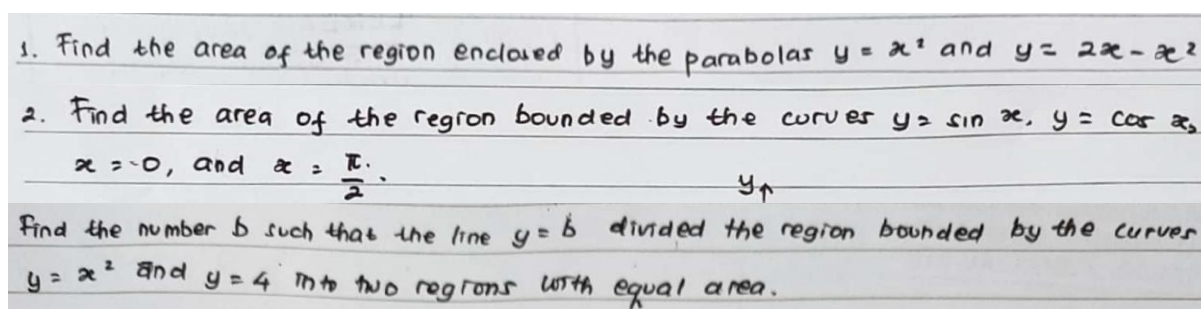 1. Find the area of the region enclosed by the parabolas y = x² and y = 2x - x²
2. Find the area of the region bounded by the curves y = sin x, y = cos x,
x = 0, and x = π/2.
y↑
Find the number b such that the line y = b divided the region bounded by the curves
y = x² and y = 4 into two regions with equal area.